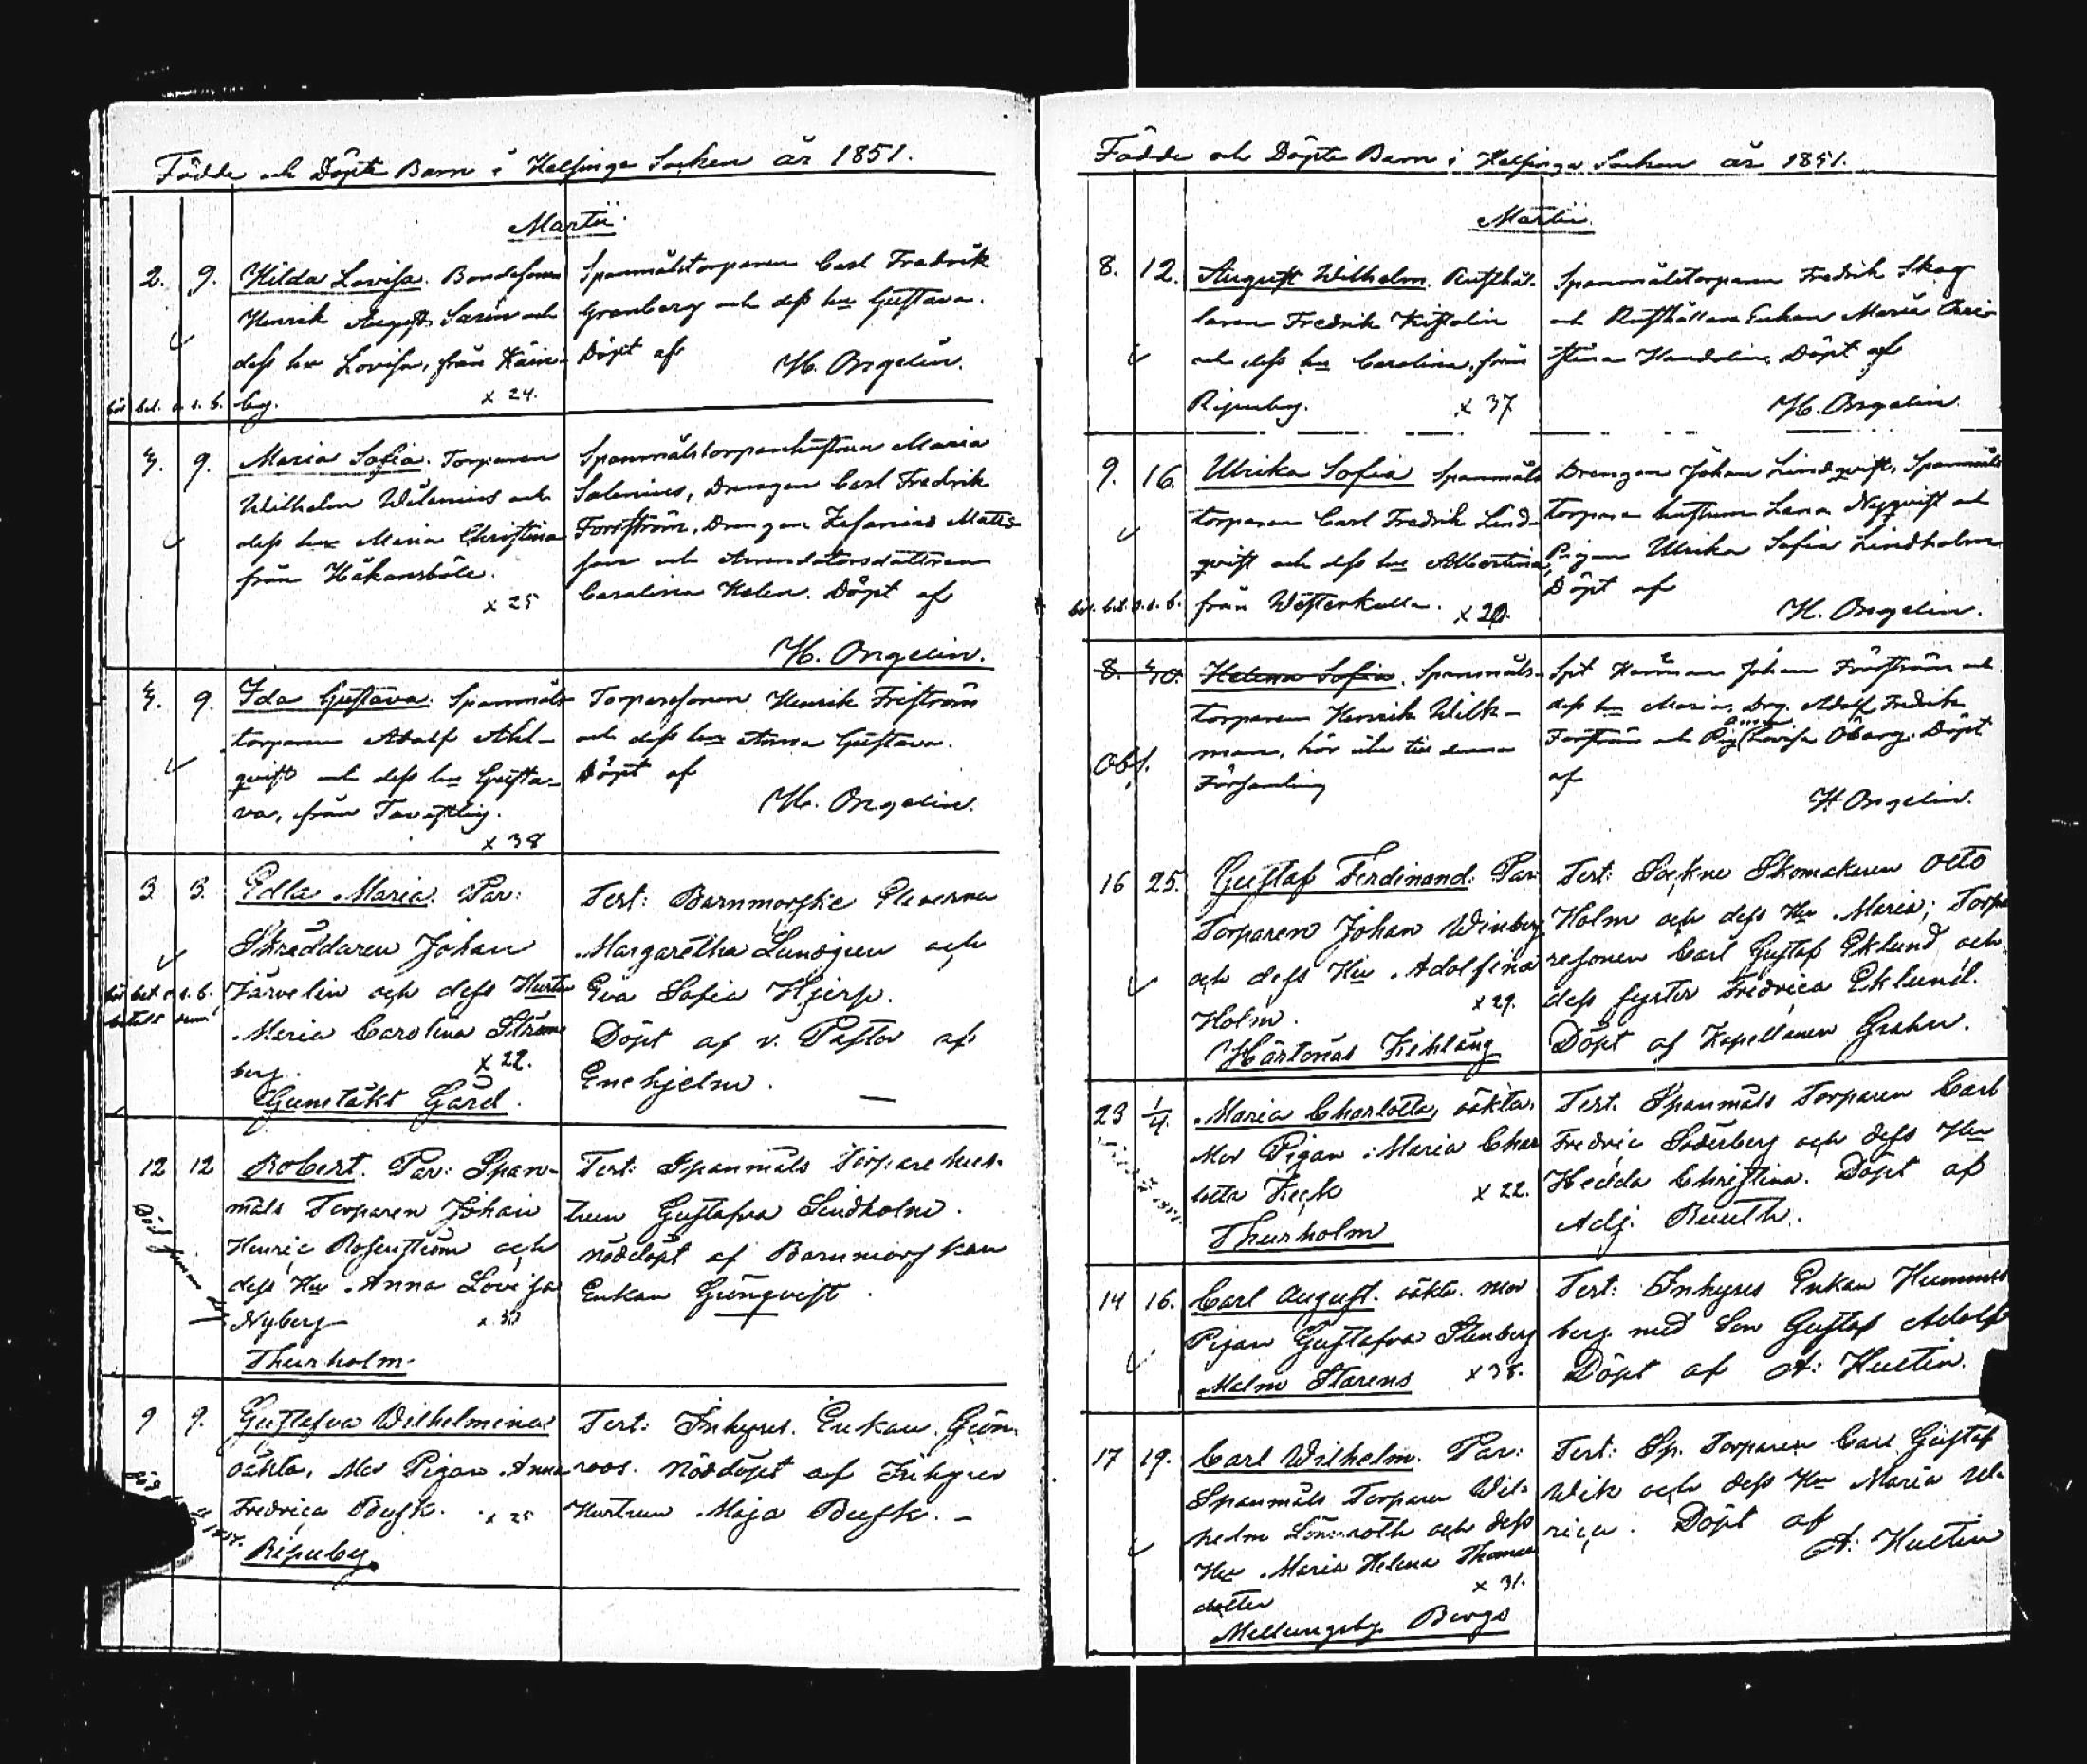 Födde och Döpte Barn i Helsinge Socken år 1851.
Martii
2. 9. Hilda Lovisa. Bondesonen
Henrik August Sarin och
dess hu Lovisa, från
by. x 24.
Spanmålstorparen Carl Fredrik
Granberg och dess hu Gustava.
Döpt af
H. Ongelin.
9. Maria Sofia. Torparen
Wilhelm Wilenius och
dess hu Maria Christina
från Håkansböle.
x 25
Spanmålstorparehustrun Maria
Salenius, Drengen Carl Fredrik
Forsström, Drengen Zefanias Matts-
son och Arrendatorsdottren
Carolina Helen. Döpt af
H. Ongelin.
9. Ida Gustava. Spanmåls-
torparen Adolf Ahl-
qvist och dess hu Gusta-
va, från Tavastby.
x 38
Torparesonen Henrik Friström
och dess hu Anna Gustava.
Döpt af
H. Ongelin.
3. 3. Edla Maria. Par:
Skreddaren Johan
Järvelin och dess Hustru
Maria Carolina Ström-
berg. x 22.
Gumtäkt Gård.
Test: Barnmorske Eleverna
Margaretha Lundgren och
Eva Sofia Hjerp.
Döpt af v. Pastor af
Enehjelm.
12 12 Robert. Par: Span-
måls Torparen Johan
Henric Rosenström och
dess Hu Anna Lovisa
Nyberg
Thurholm.
Test: Spanmåls Torparehus-
trun Gustafva Lindholm.
Nöddöpt af Barnmorskan
Enkan Grönqvist.
9 9. Gustafva Wilhelmina
oäkta, Mor Pigan Anna
Fredrica Busk. x 25
Ripuby.
Test: Inhyses Enkan Grön-
roos. Nöddöpt af Inhyses
Hustrun Maja Busk. –
Födde och Döpte Barn i Helsinge Socken år 1851.
Martii.
8. 12. August Wilhelm. Rusthål-
laren Fredrik
och dess hu Carolina, från
Ripuby. x 37
Spanmålstorparen Fredrik Skog
och Rusthållare Enkan Maria Chri-
stina Handolin. Döpt af
H. Ongelin.
9. 16. Ulrika Sofia Spanmåls
torparen Carl Fredrik Lind-
qvist och dess hu Albertina,
från Westerkulla.
Drengen Johan Lindqvist, Spanmåls
torpare hustrun Lena Nyqvist och
Pigan Ulrika Sofia Lindholm
Döpt af
H. Ongelin.
8. Helena Sofia. Spanmåls-
torparen Henrik Wilk-
man, hör icke till denna
Obs. Församling
Spt Johan Forsström och
dess hu Maria, Drg. Adolf Fredrik
Forsström och Pig Anna Lovisa Öberg. Döpt
af
H Ongelin.
16 25. Gustaf Ferdinand: Par
Torparen Johan Winberg
och dess Hu Adolfina
Holm. x 29.
Hertonäs Kihläng
Test: Sockne Skomakaren Otto
Holm och dess Hu Maria; Torpa
resonen Carl Gustaf Eklund och
dess syster Fredrica Eklund.
Döpt af Kapellanen Grahn.
23 1/4. Maria Charlotta, oäkta.
Mor Pigan Maria Char
lotta Keck x 22.
Thurholm
Test. Spanmåls Torparen Carl
Fredric Söderberg och dess Hu
Hedda Christina. Döpt af
Adj. Reuth.
14 16. Carl August. oäkta. mor
Pigan Gustafva Stenberg
Malm Starens x 38.
Test: Inhyses Enkan Hummel
berg med Son Gustaf Adolf
Döpt af A: Hultin.
17 19. Carl Wilhelm. Par:
Spanmåls Torparen Wil-
helm Lönnroth och dess
Hu Maria Helena Thomas
dotter x 31.
Mellungsby Bergs
Test: Sp. Torparen Carl Gustaf
Wik och dess Hu Maria Ul-
rica. Döpt af
A: Hultin